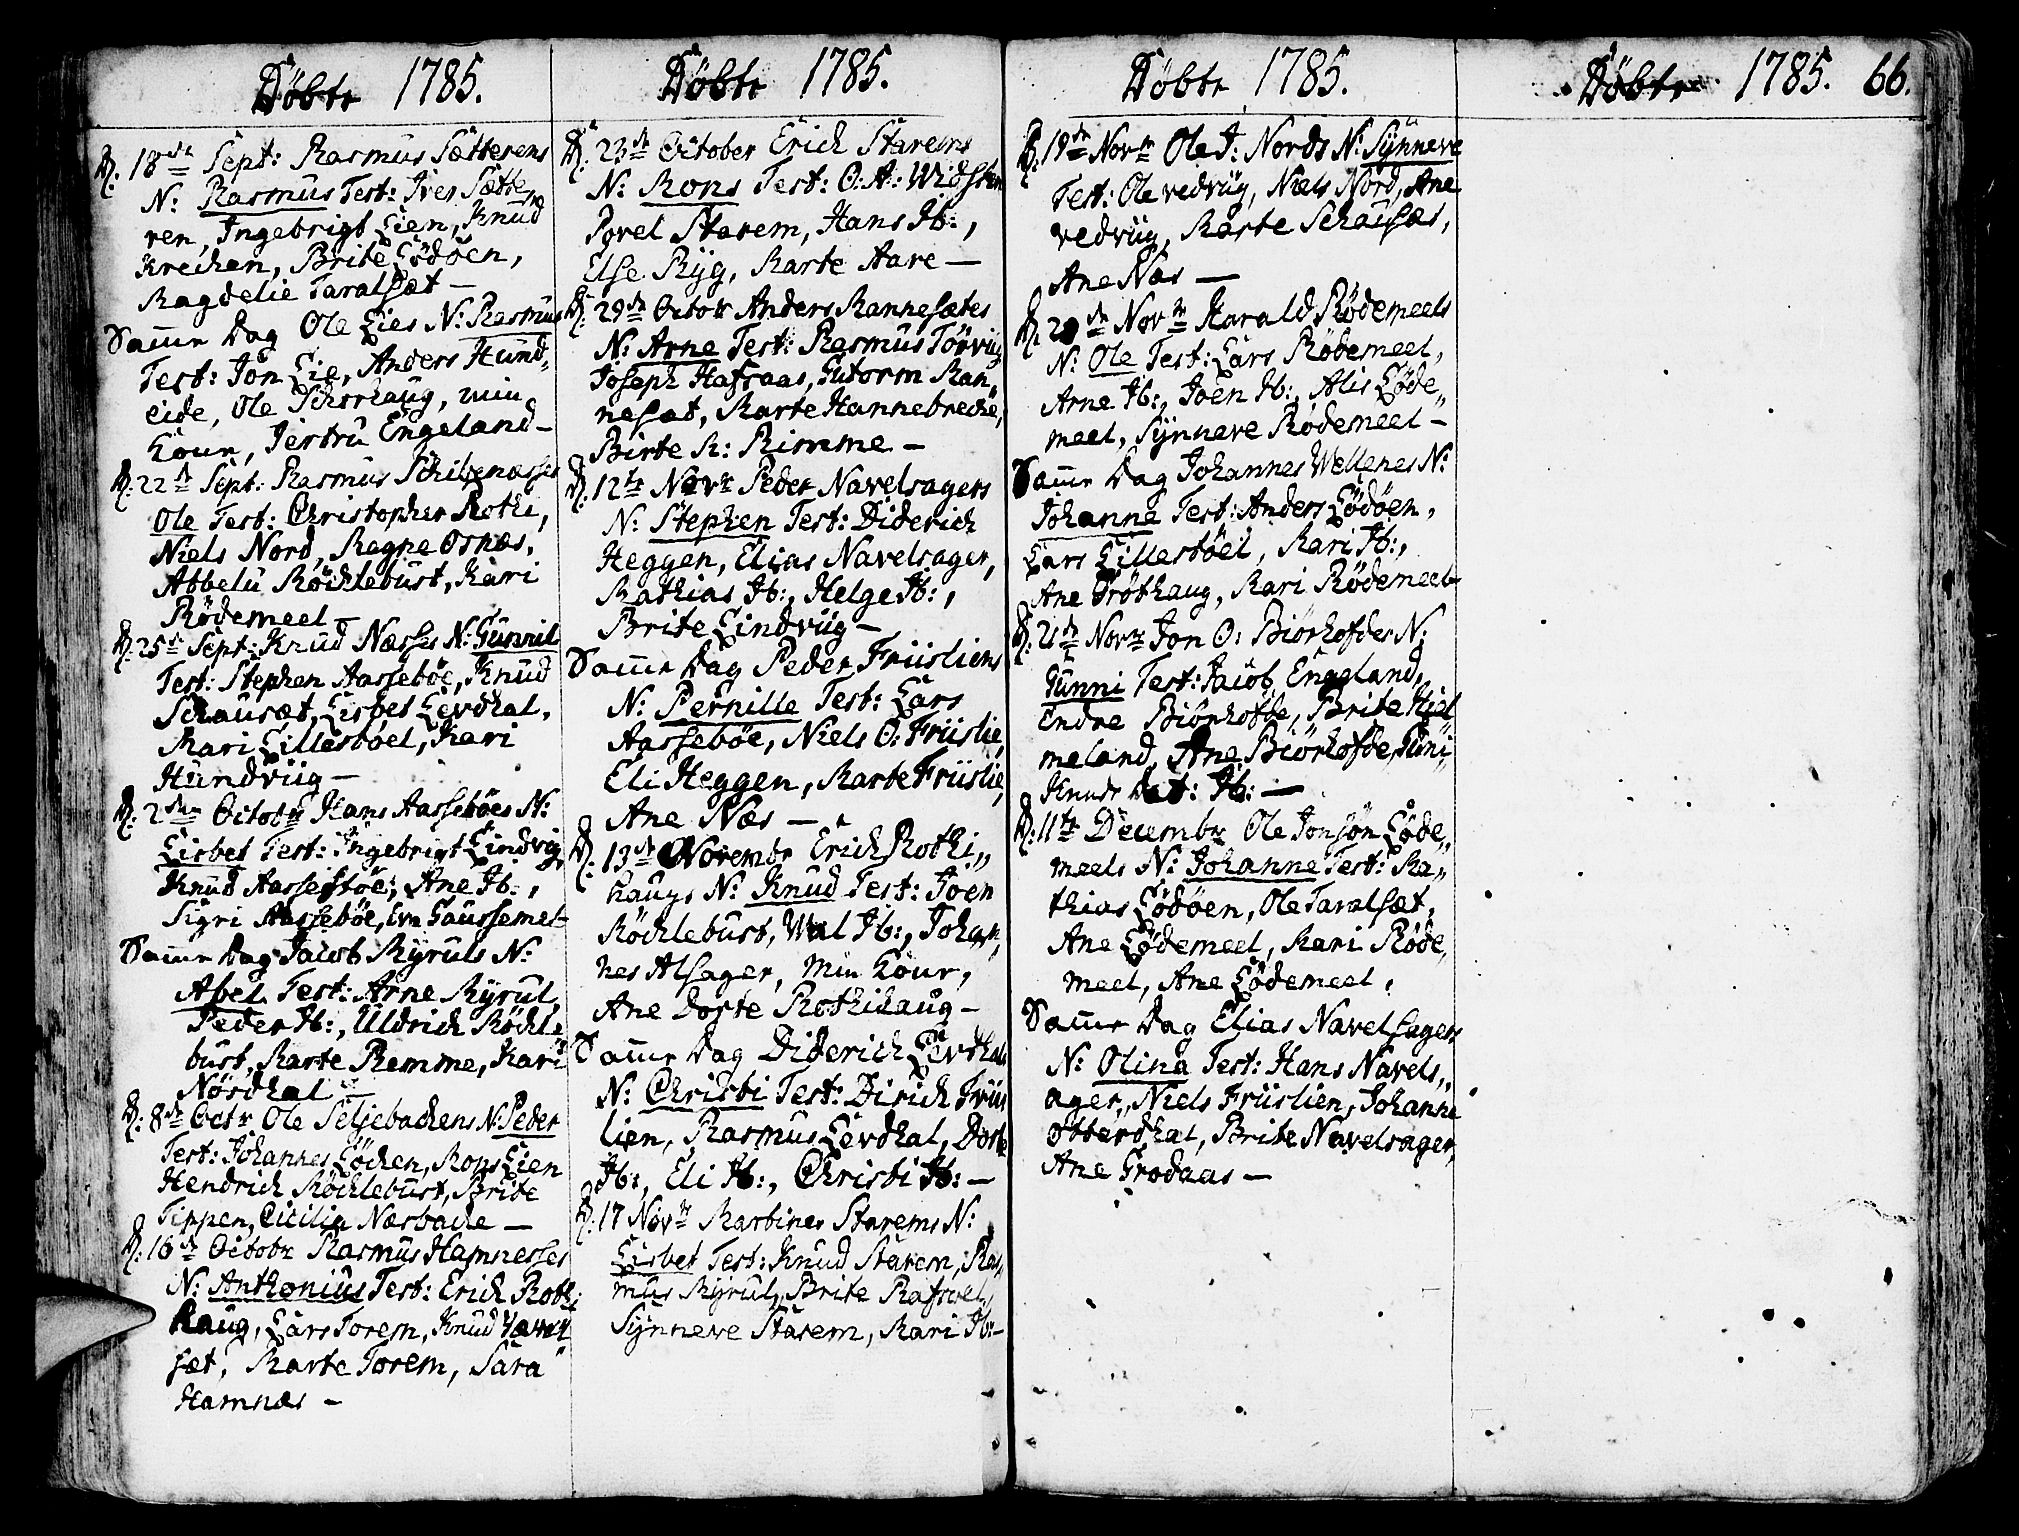 Döbte 1785.
D: 18de Sept: Rasmus Sætterens
N: Rasmus Test: Iver Sætte,,
ren, Ingebrigt Lien, Knud
Kreken, Brite Lödöen,
Magdelie Taralsæt —
Samme Dag Ole Lies N: Rasmus
Test: Jon Lie, Anders Hund,,
eide, Ole Schorhaug, min
Koune, Jertru Engeland —
D: 22de Sept: Rasmus
Ole Test: Christopher Rothi,
Niels Nord, Ragne Osnæs,
Abbelu Röchlebust, Kari
Rödemeel —
D: 25de Sept: Knud Næsses N: Gunnil
Test: Stephen Aasseböe, Knud
Schausæt, Lisbet Levdhal,
Mari Lillestöel, Kari
Hundviig —
D: 2den Octobr Hans Aasseböes N:
Lisbet Test: Ingebrigt Lindvig
Knud Aasseböe, Ane Ib:,
Sigri Aasseböe, Eva Gaussemel
Samme Dag Jacob Myruls N:
Abel Test: Arne Myrul
Peder Ib:, Uldrich Röchle
bust, Marte Remme, Kari
Nørdhal —
D: 8de Octr Ole Seljebachens N: Peder
Test: Johannes Löchen, Mons Lien
Hendrich Röchlebust, Brite
Tippen, Cicilia Næsbache —
D: 16de Octobr Rasmus Hamnesses
N: Anthonius Test: Erich Rothi
haug, Lars Torem, Knud
sæt, Marte Torem, Sara
Hamnæs —
Döbte 1785.
D: 23de October Erich Starems
N: Mons Test: O: A: Widsten
Povel Starem, Hans Ib:,
Else Myg, Marte Aare —
D: 29de Octobr Anders Mannesætes
N: Arne Test: Rasmus Törviig
Joseph Hafraas, Gutorm Man,,
nesæt, Marte Hannebreche,
Birte R: Rimme —
D: 12te Novr Peder Navelsagers
N: Stephen Test: Diderich
Heggen, Elias Navelsager,
Mathias Ib:, Helge Ib:,
Brite Lindviig —
Samme Dag Peder Friisliens
N: Pernille Test: Lars
Aassebøe, Niels O: Friislie,
Eli Heggen, Marte Friislie,
Ane Næs —
D: 13de Novembr Erich Rothi,,
haugs N: Knud Test: Joen
Röchlebust, Wal Ib:, Johan,,
nes Alsager, Min Kour,
Ane Dorte Rothihaug —
Samme Dag Diderich Levdhals
N: Christi Test: Dirich Friis
lien, Rasmus Levdhal, Dorte
Ib:, Eli Ib:, Christi Ib: —
D: 17 Novr Martines Starems N:
Lisbet Test: Knud Starem, Ras,,
mus Myrul, Brite Rafsvel,
Synneve Starem, Mari Ib: —
Döbte 1785.
D: 18de Novr Ole I: Nords N: Synneve
Test: Ole vedviig, Niels Nord, Ane
vedviig, Marte Schausæt,
Ane Næs —
D: 20de Novr Harald Rödemeels
N: Ole Test: Lars Rödemeel,
Arne Ib:, Joen Ib:, Alis Löde,,
meel, Synneve Rödemeel —
Samme Dag Johannes Wellenes N:
Johanne Test: Anders Lödöen,
Lars Lillestöel, Mari Ib:,
Ane Tröthaug, Mari Rödemeel
D: 21de Novr Jon O: Biörhofdes N:
Gunni Test: Jacob Engeland,
Endre Biörhofde, Brite Hiel
meland, Ane Biörhofde, Guni
Knuds Dat: Ib: —
D: 11te Decembr Ole Jonsøn Löde,,
meels N: Johanne Test: Ma,,
thias Lödöen, Ole Taralsæt,
Ane Lödemeel, Mari Röde,
meel, Ane Lödemeel.
Samme Dag Elias Navelsagers
N: Olina Test: Hans Navels,,
ager, Niels Friislien, Johanne
Otterdhal, Brite Navelsager,
Ane Grodaas —
Döbte 1785. 66.